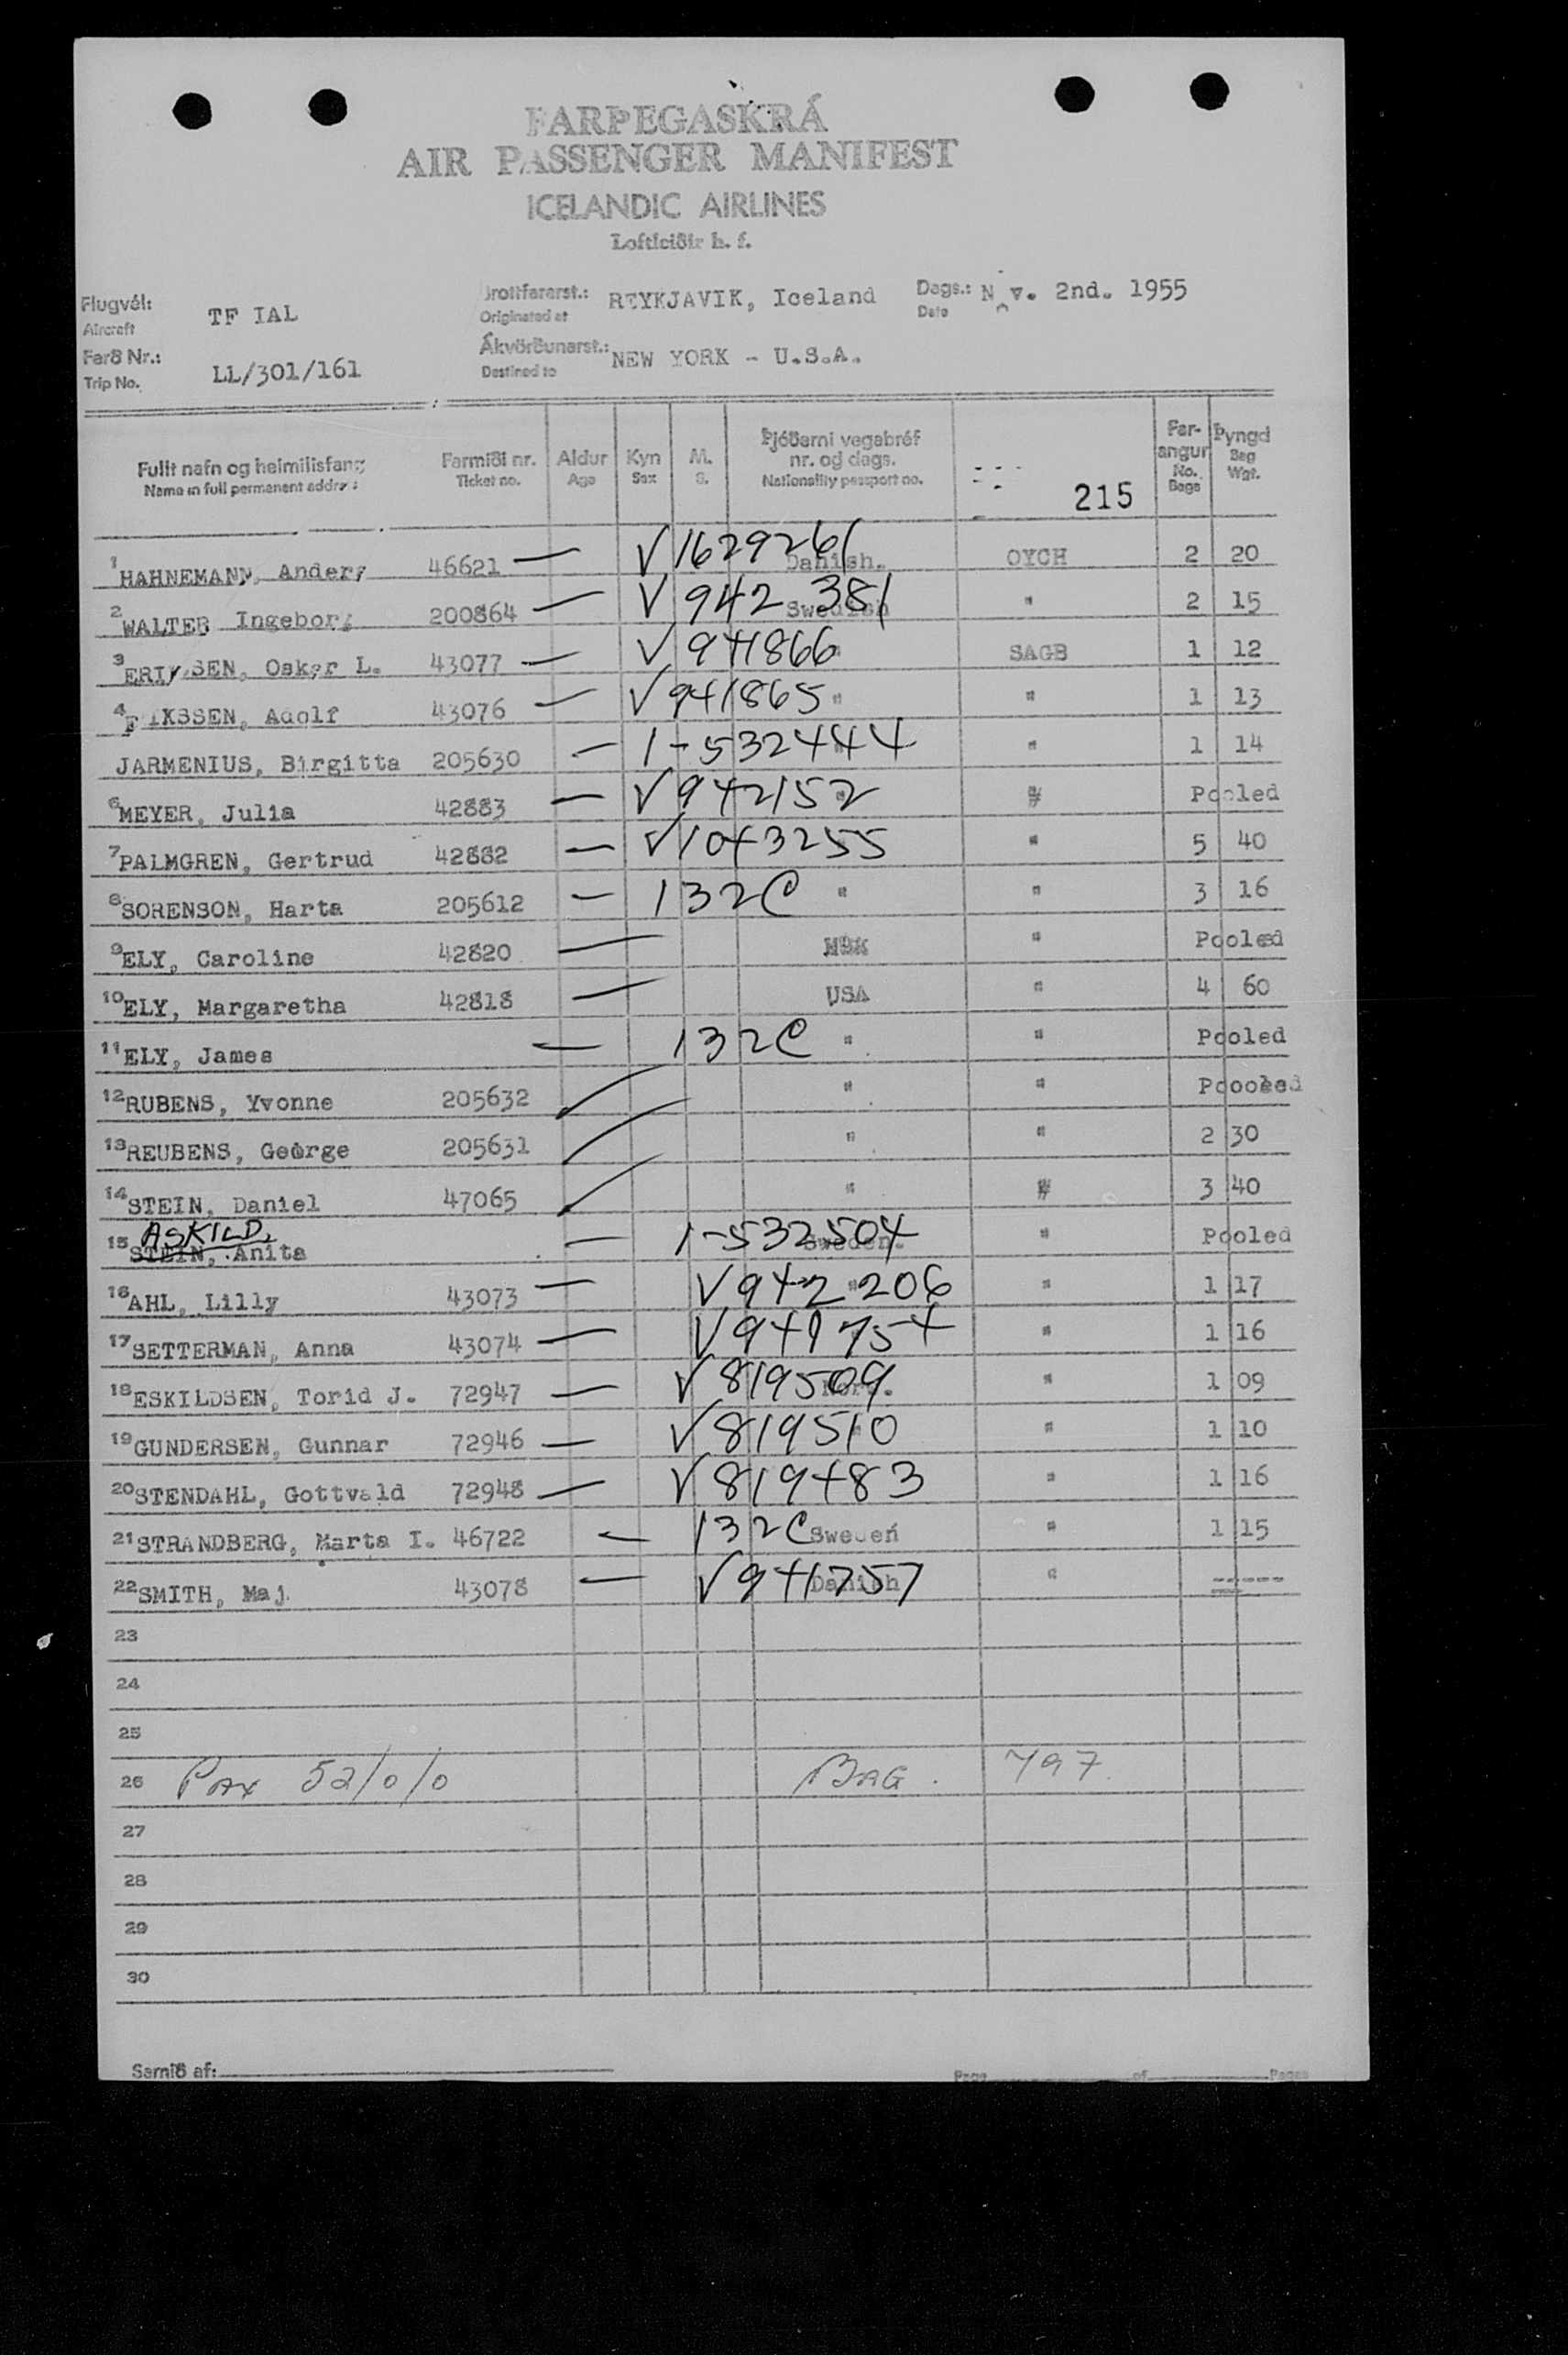 FARÞEGASKRÁ
AIR PASSENGER MANIFEST
ICELANDIC AIRLINES
Loftleiðir h. f.
Flugvél: TF IAL Brottfararst.: REYKJAVIK, Iceland Dags.: Nov. 2nd. 1955
Aircraft Originated at Date
Ferð Nr.: LL/301/161 Ákvörðunarst.: NEW YORK - U.S.A.
Trip No. Destined to
Fullt nafn og heimilisfang Farmiði nr. Aldur Kyn M. Þjóðerni vegabréf nr. og dags. Far-angur Þyngd
Name in full permanent address Ticket no. Age Sex S. Nationality passport no. 215 No. Bags Bag Wgt.
1 HAHNEMANN, Anders 46621 — V1629261 Danish. OYCH 2 20
2 WALTER Ingeborg 200864 — V942 381 Swedish " 2 15
3 ERIKSEN, Oskar L. 43077 — V941866 " SAGB 1 12
4 ERIKSSEN, Adolf 43076 — V941865 " " 1 13
JARMENIUS, Birgitta 205630 — 1-532444 " " 1 14
6 MEYER, Julia 42883 — V942152 " " Pooled
7 PALMGREN, Gertrud 42882 — V1043255 " 5 40
8 SORENSON, Harta 205612 — 132C " " 3 16
9 ELY, Caroline 42820 — " Pooled
10 ELY, Margaretha 42818 — USA " 4 60
11 ELY, James — 132C " " Pooled
12 RUBENS, Yvonne 205632 " " Pooled
13 REUBENS, George 205631 " " 2 30
14 STEIN, Daniel 47065 " " 3 40
ASKILD,
15 STEIN, Anita — 1-532504 Sweden. " Pooled
16 AHL, Lilly 43073 — V942206 " " 1 17
17 SETTERMAN, Anna 43074 — V941754 " 1 16
18 ESKILDSEN, Torid J. 72947 — V819509 Norw. " 1 09
19 GUNDERSEN, Gunnar 72946 — V819510 " " 1 10
20 STENDAHL, Gottvald 72948 — V819483 " 1 16
21 STRANDBERG, Marta I. 46722 — 132C Sweden " 1 15
22 SMITH, Maj. 43078 — V941757 Danish " -----
23
24
25
26 Pax 52/0/0 BAG. 797.
27
28
29
30
Samið af: Page of Pages